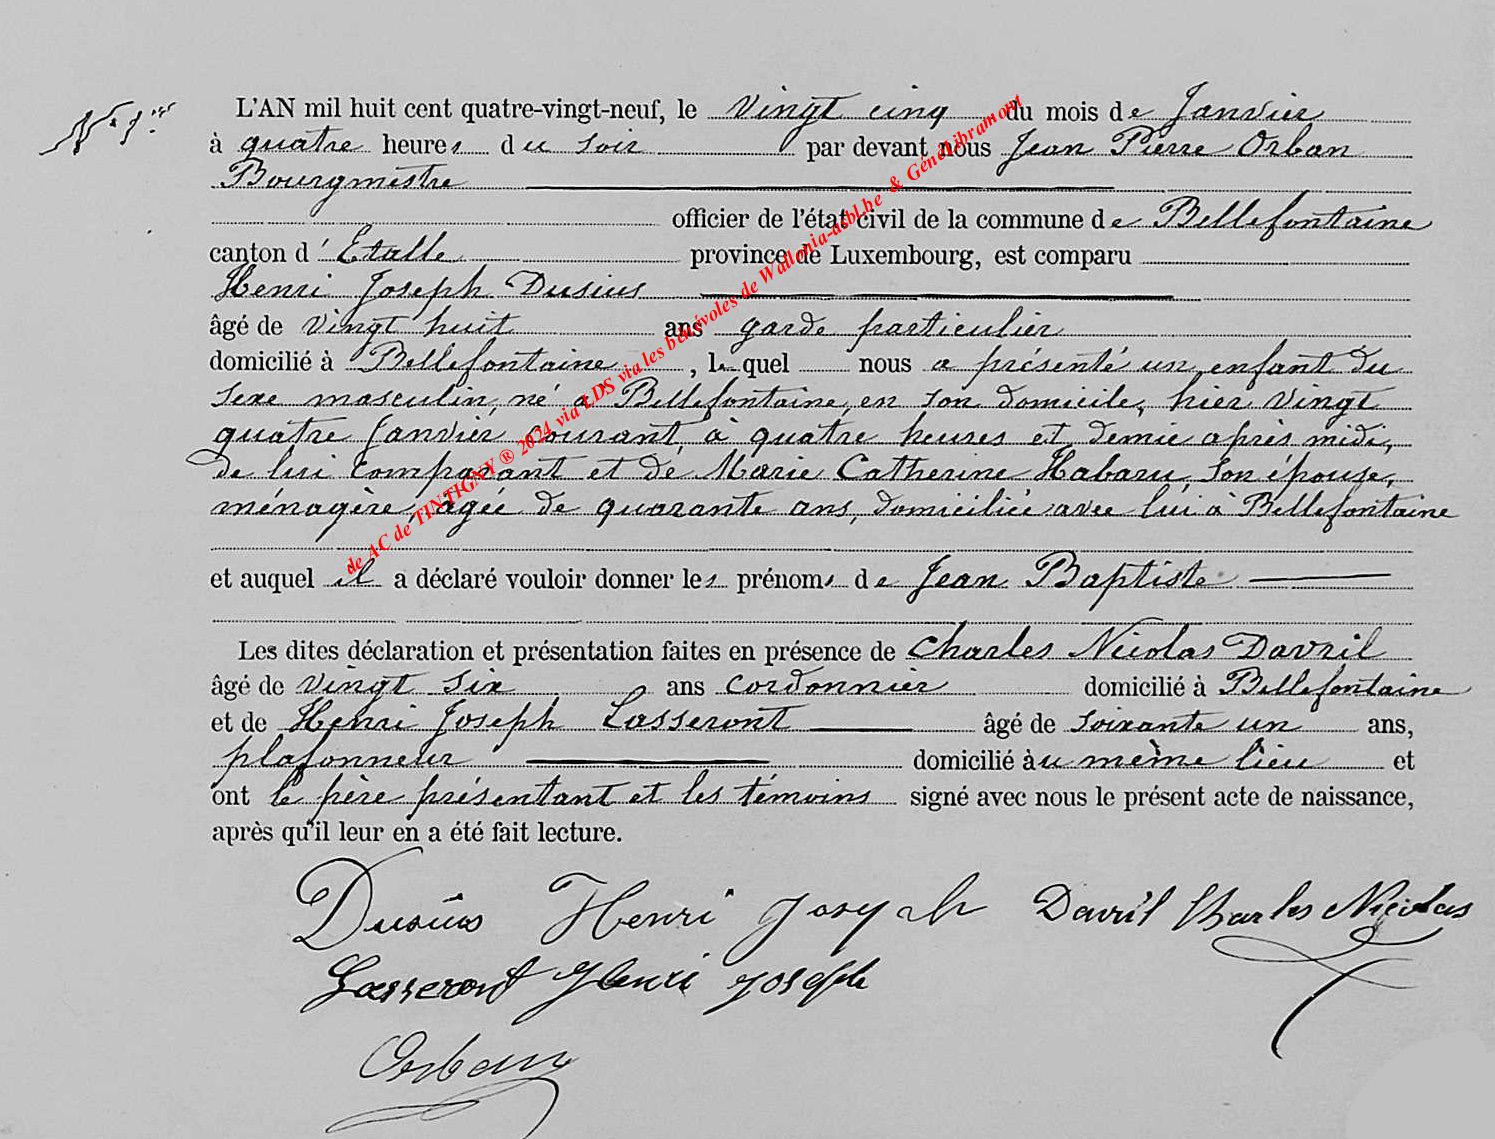 N° 1er
L'AN mil huit cent quatre-vingt-neuf, le Vingt cinq du mois de Janvier
à quatre heures du soir par devant nous Jean Pierre Orban
Bourgmestre
officier de l'état civil de la commune de Bellefontaine
canton d'Etalle province de Luxembourg, est comparu
Henri Joseph Dusius
âgé de vingt huit ans garde particulier
domicilié à Bellefontaine, lequel nous a présenté un enfant du
sexe masculin, né à Bellefontaine, en son domicile, hier vingt
quatre Janvier courant, à quatre heures et demie après midi,
de lui comparant et de Marie Catherine Habaru, son épouse,
ménagère, âgée de quarante ans, domiciliée avec lui à Bellefontaine
et auquel il a déclaré vouloir donner les prénoms de Jean Baptiste
Les dites déclaration et présentation faites en présence de Charles Nicolas Davril
âgé de vingt six ans cordonnier domicilié à Bellefontaine
et de Henri Joseph Lasseront âgé de soixante un ans,
plafonneur domicilié au même lieu et
ont le père présentant et les témoins signé avec nous le présent acte de naissance,
après qu'il leur en a été fait lecture.
Dusius Henri Joseph Davril Charles Nicolas
Lasseront Henri Joseph
Orban
de AC de TINTIGNY ® 2024 via LDS via les bénévoles de Wallonia-asbl.be & Généalibramont